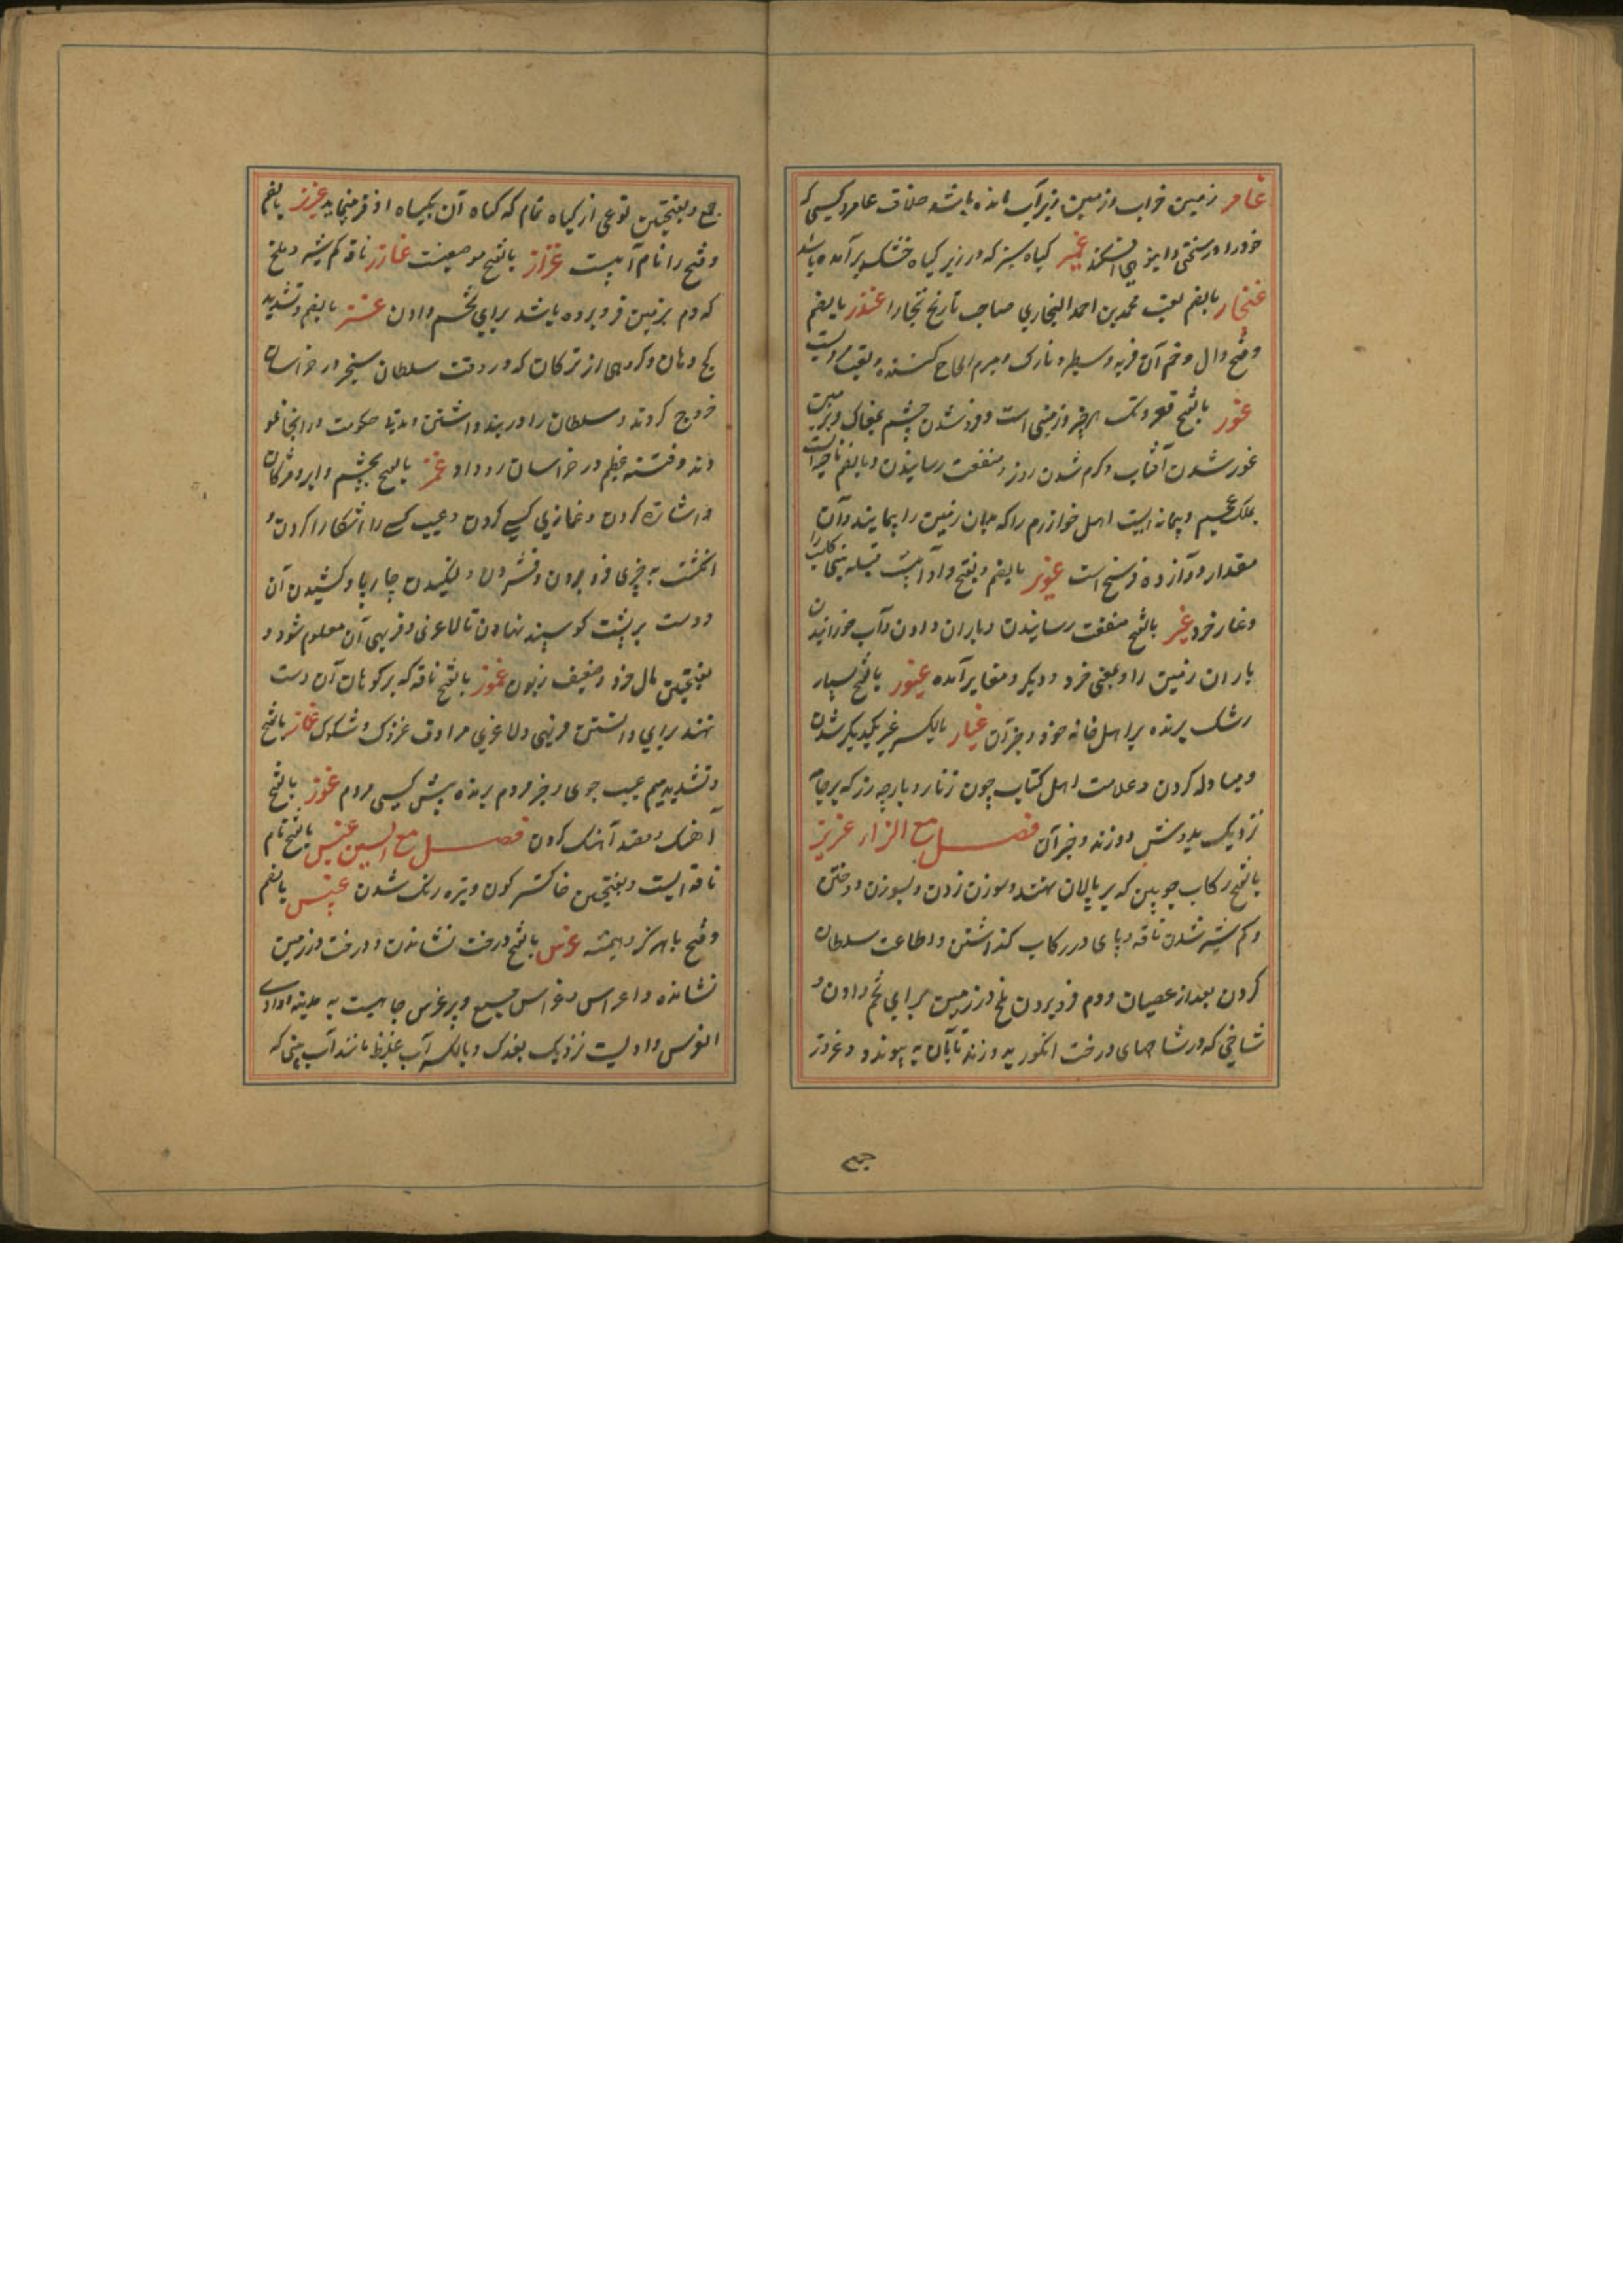 غامر زمین خراب و زمین زیر آب مانده باشد خلاف عامر و کسی که
خود را در سختی و انبوهی افکند غمیر کیاه سبز که در زیر کیاه خشک برآمده باشد
غنجار بالضم لقب محمد بن احمد البخاری صاحب تاریخ بخارا غندر بالضم
و فتح دال و ضم آن فربه و سطبر و نازک و مبرم الحاح کننده و لقب
غور بالفتح قعر و تک هر چیز و زمینی است و فرو شدن چشم بمغاک و بزمین
غور شدن آفتاب و کرم شدن روز و منفعت رسانیدن و بالضم
بملک عجم و پیمانه ایست اهل خوارزم را که بدان زمین را پیمایند و آن
مقدار دوازده فرسخ است غویر بالضم و بفتح واو آبیست قبیله بنی کلب را
و غار خرد غیر بالفتح منفعت رسانیدن و باران دادن و آب خورانیدن
باران زمین را و بمعنی خرد و دیکر و مغایر آمده غیور بالفتح بسیار
رشک برنده بر اهل خانه خود و جز آن غیار بالکسر غیر یکدیکر شدن
و مبادله کردن و علامت اهل کتاب چون زنار و پارچه زرد که بر جامه
نزدیک بدوش دوزند و جز آن فصل مع الزاء غرز
بالفتح رکاب چوبین که بر پالان نهند و سوزن زدن و بسوزن دوختن
و کم شیر شدن ناقه و پای در رکاب کذاشتن و اطاعت سلطان
کردن بعد از عصیان و دم فرو بردن ملخ در زمین برای تخم دادن و
شاخی که در شاخهای درخت انکور بدوزند تا بآن به پیوندد و غروز
جمع و بفتحتین نوعی از کیاه تمام که کیاه آن بکیاه اذخر میماند غزیز بالضم
و فتح را نام آبیست غزاز بالفتح موضعیست غارز ناقه کم شیر و ملخ
که دم بزمین فرو برده باشد برای تخم دادن غز بالضم و تشدید
کج دهان و کروهی از ترکان که در وقت سلطان سنجر در خراسان
خروج کردند و سلطان را در بند داشتن و مدتها حکومت در آنجا
و فتنه عظیم در خراسان رو داد غمز بالفتح بچشم و ابرو و مژکان
و اشارت کردن و غمازی کسی کردن و عیب کسی را آشکارا کردن و
انکشت به چیزی فرو بردن و فشردن و لنکیدن چارپا و کشیدن آن
و دست بر پشت کوسپند نهادن تا لاغری و فربهی آن معلوم شود و
بفتحتین مال خرد و ضعیف زبون غموز بالفتح ناقه که بر کوهان آن دست
نهند برای دانستن فربهی و لاغری مرادف عروک و شکوک غماز بالفتح
و تشدید میم عیب جوی و خبر مردم برنده پیش کسی مردم غوز بالفتح
آهنک و قصد آهنک کردن فصل مع السین غبس بالفتح نام
ناقه ایست و بفتحتین خاکستر کون و تیره رنک شدن غبیس بالضم
و فتح با هرکز و همیشه غرس بالفتح درخت نشاندن و درخت در زمین
نشانده و اغراس و غراس جمع و بیر غرس چاهیست به مدینه و وادی
الغرس وادیست نزدیک بفدک و بالکسر آب غلیظ مانند آب بینی که